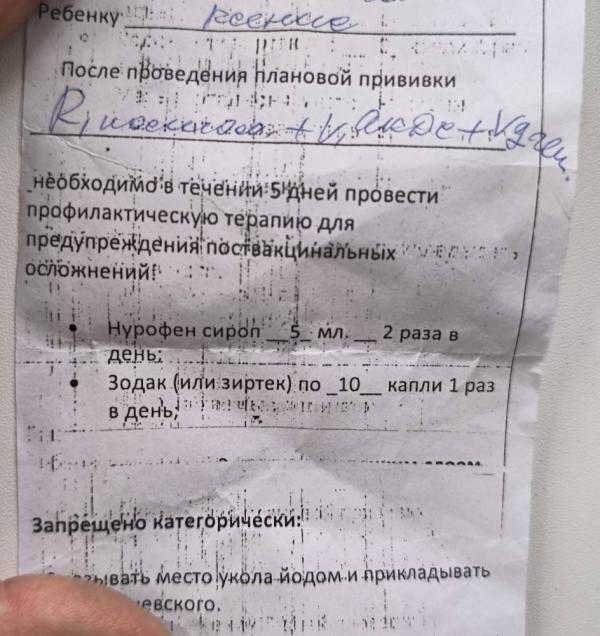 Ребенку Ксение
После проведения плановой прививки
R₁ + V₁ АКДС +
необходимо в течении 5 дней провести
профилактическую терапию для
предупреждения поствакцинальных
осложнений:
• Нурофен сироп __5_ мл. ___ 2 раза в
день;
• Зодак (или зиртек) по _10__ капли 1 раз
в день;
Запрещено категорически:
место укола йодом и прикладывать